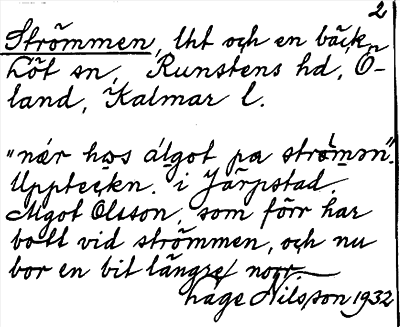 2
Strömmen, lht och en bäck,
Löt sn, Runstens hd, Ö-
land, Kalmar l.
"nær hos álgot pa strömən".
Uppteckn. i Järpstad.
Algot Olsson, som förr har
bott vid strömmen, och nu
bor en bit längre norr.
Låge Nilsson 1932